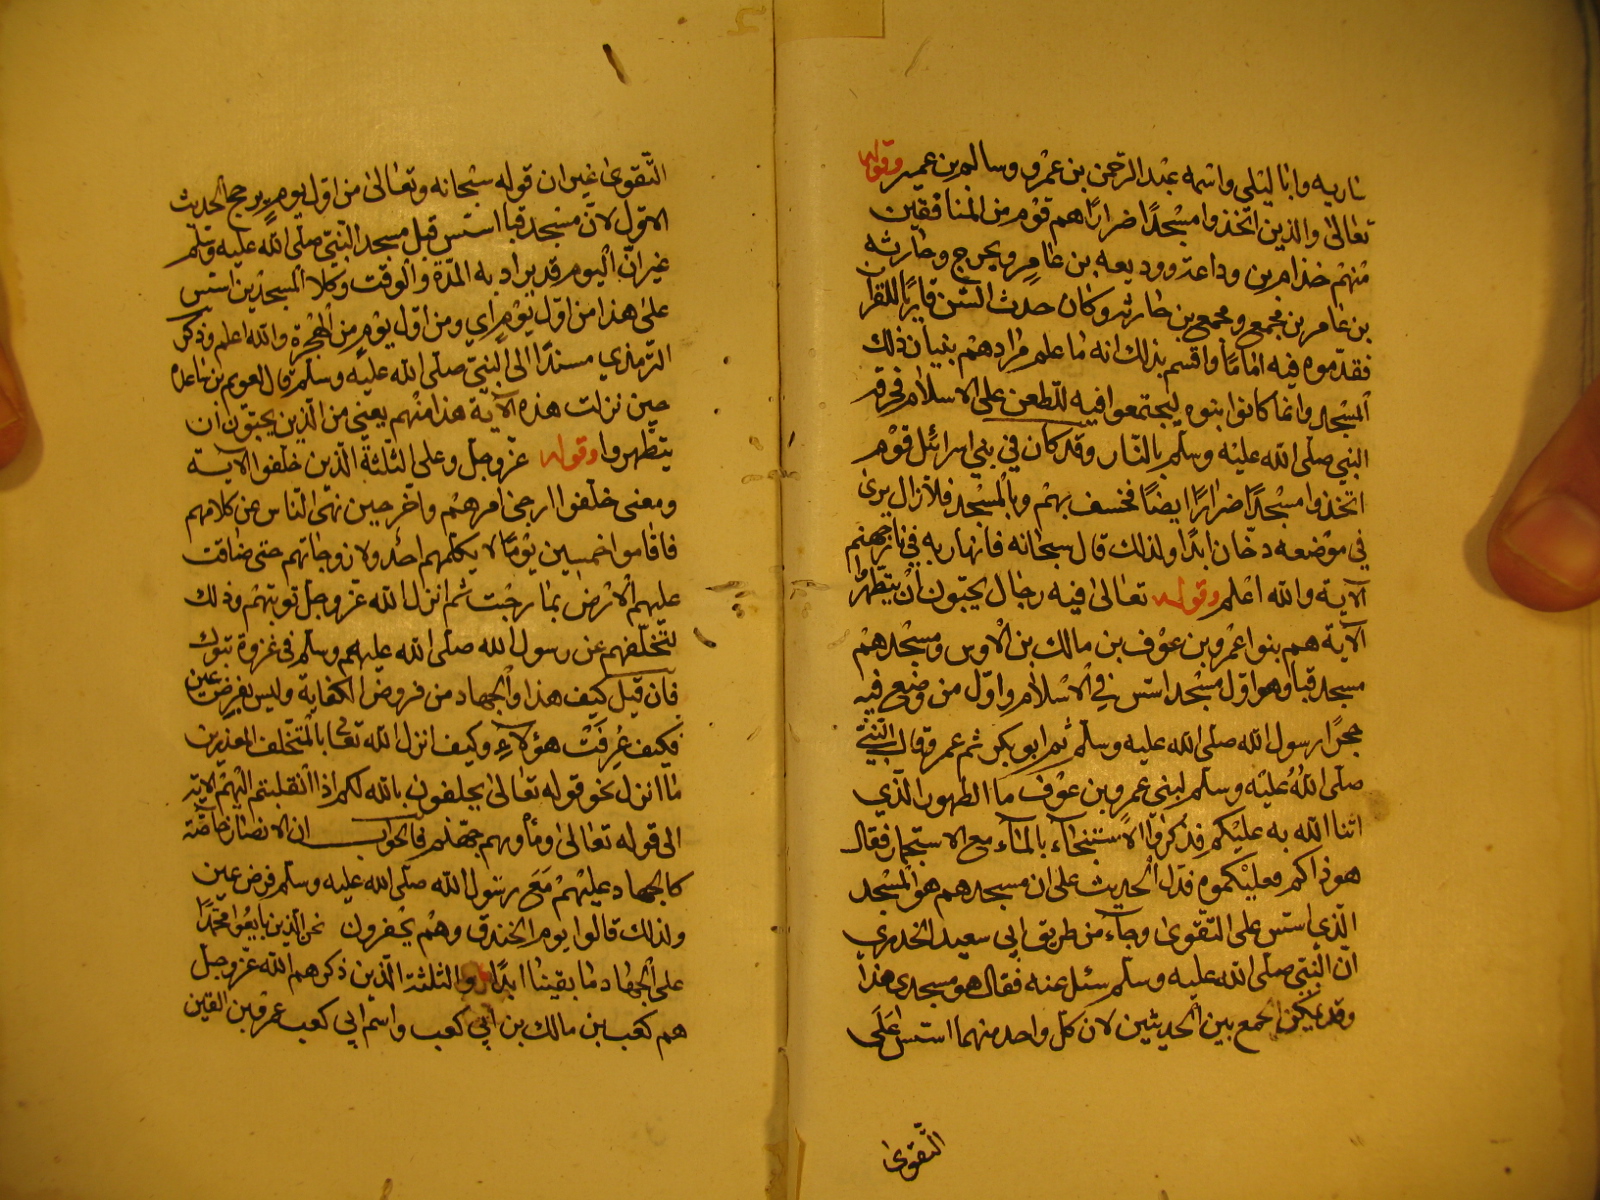 ناريه وابا ليلى واسمه عبد الرحمن بن عمرو وسالم بن عمير وقوله
تعالى والذين اتخذوا مسجدا ضرارا هم قوم من المنافقين
منهم خذام بن وداعة ووديعه بن عامر وبحرج وحارثه
بن عامر بن مجمع ومجمع بن حارثه وكان حدث السن قاريا للقرآن
فقدموه فيه اماما واقسم بذلك انه ما علم مرادهم بنيان ذلك
المسجد وانما كانوا بنوه ليجتمعوا فيه للطعن على الاسلام فحرقه
النبي صلى الله عليه وسلم بالنار وقد كان في بني اسرائل قوم
اتخذوا مسجدا ضرارا ايضا فخسف بهم وبالمسجد فلا زال يرى
في موضعه دخان ابدا ولذلك قال سبحانه فانهار به في نار جهنم
الآية والله اعلم وقوله تعالى فيه رجال يحبون أن يتطهروا
الآية هم بنوا عمرو بن عوف بن مالك بن الاوس ومسجدهم
مسجد قبا وهو اول مسجد اسس في الاسلام واول من وضع فيه
حجرا رسول الله صلى الله عليه وسلم ثم ابو بكر ثم عمر وقال النبي
صلى الله عليه وسلم لبني عمرو بن عوف ما الطهور الذي
اثنا الله به عليكم فذكروا الاستنجاء بالماء مع الاستجمار فقال
هو ذاكم فعليكموه فدل الحديث على ان مسجدهم هو المسجد
الذي اسس على التقوى وجاء من طريق ابي سعيد الخدري
ان النبي صلى الله عليه وسلم سئل عنه فقال هو مسجدي هذا
وقد يمكن الجمع بين الحديثين لان كل واحد منهما اسس على
التقوى
التقوى غير ان قوله سبحانه وتعالى من اول يوم يرجح الحديث
الاول لان مسجد قبا اسس قبل مسجد النبي صلى الله عليه وسلم
غير ان اليوم قد يراد به المدة والوقت وكلا المسجدين اسس
على هذا من اول يوم اي ومن اول يوم من الهجرة والله اعلم وذكر
الترمذي مسندا الى النبي صلى الله عليه وسلم قال لعويم بن ساعده
حين نزلت هذه الآية هذا منهم يعني من الذين يحبون أن
يتطهروا وقوله عز وجل وعلى الثلثة الذين خلفوا الآية
ومعنى خلفوا ارجئ امرهم واخر حين نهى الناس عن كلامهم
فاقاموا خمسين يوما لا يكلمهم احد ولا زوجاتهم حتى ضاقت
عليهم الارض بما رحبت ثم انزل الله عز وجل توبتهم وذلك
لتخلفهم عن رسول الله صلى الله عليه وسلم في غزوة تبوك
فان قيل كيف هذا والجهاد من فروض الكفاية وليس بفرض عين
فكيف هؤلاء وكيف انزل الله تعالى بالمتخلف المعذرين
ما انزل نحو قوله تعالى يحلفون بالله لكم اذا انقلبتم اليهم لآية
الى قوله تعالى وماوهم جهنم فالجواب ان الانصار خاصة
كا لجهاد عليهم مع رسول الله صلى الله عليه وسلم فرض عين
ولذلك قالوا يوم الخندق وهم يحفرون نحن الذين بايعوا محمدا
على الجهاد ما بقينا ابدا والثلثة الذين ذكرهم الله عز وجل
هم كعب بن مالك بن ابي كعب واسم ابي كعب عمرو بن القين